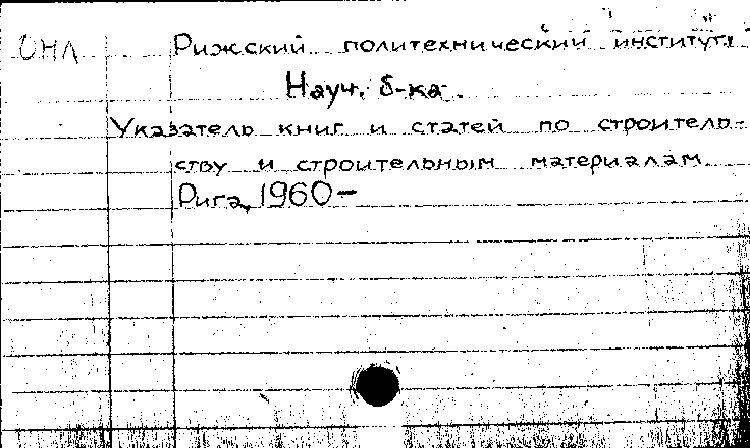 ОНЛ Рижский политехнический институт.
Науч. б-ка.
Указатель книг и статей по строитель-
ству и строительным материалам.
Рига, 1960-